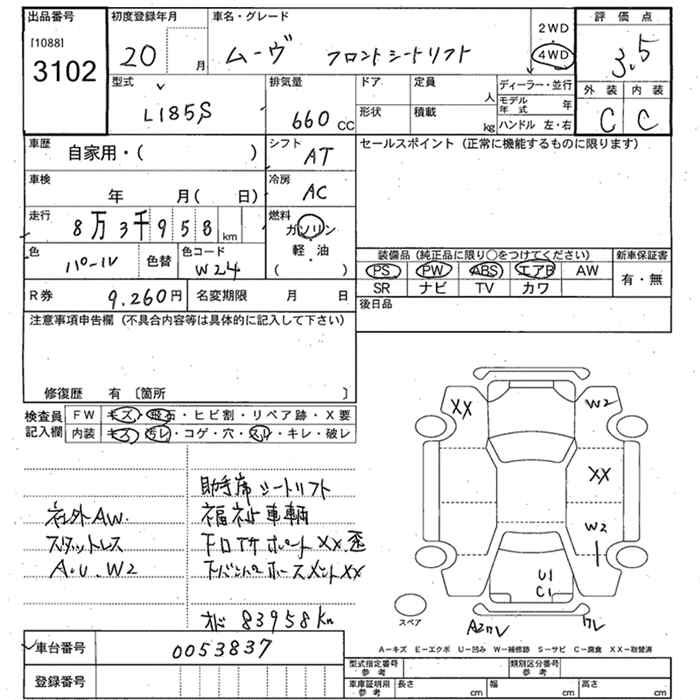 出品番号
[1088]
3102
初度登録年月
20 月
車名・グレード
ムーヴ フロントシートリフト
2WD
4WD
評価点
3.5
外装 内装
C C
型式
L185S
排気量
660 cc
ドア
定員
人
形状
積載
kg
ディーラー・並行
モデル年式 年
ハンドル 左・右
車歴
自家用・( )
シフト
AT
セールスポイント(正常に機能するものに限ります)
車検
年 月( 日)
冷房
AC
走行
8万3千958 km
燃料
ガソリン
軽・油
( )
色
パール
色替
色コード
W24
装備品(純正品に限り○をつけてください)
新車保証書
PS PW ABS エアB AW
有・無
SR ナビ TV カワ
R券
9.260円
名変期限 月 日
後日品
注意事項申告欄(不具合内容等は具体的に記入して下さい)
修復歴 有 〔箇所 〕
検査員記入欄
FW キズ・飛石・ヒビ割・リペア跡・X要
内装 キズ・汚レ・コゲ・穴・スレ・キレ・破レ
助手席シートリフト
社外AW. 福祉車輌
スタットレス
A.U.W2
オド 83958km
XX
W2
XX
W2
U1
C1
A2ワレ
ワレ
スペア
A－キズ E－エクボ U－凹み W－補修跡 S－サビ C－腐食 XX－取替済
車台番号
0053837
登録番号
型式指定番号 参考
類別区分番号 参考
車庫証明用 参考
長さ cm
幅 cm
高さ cm